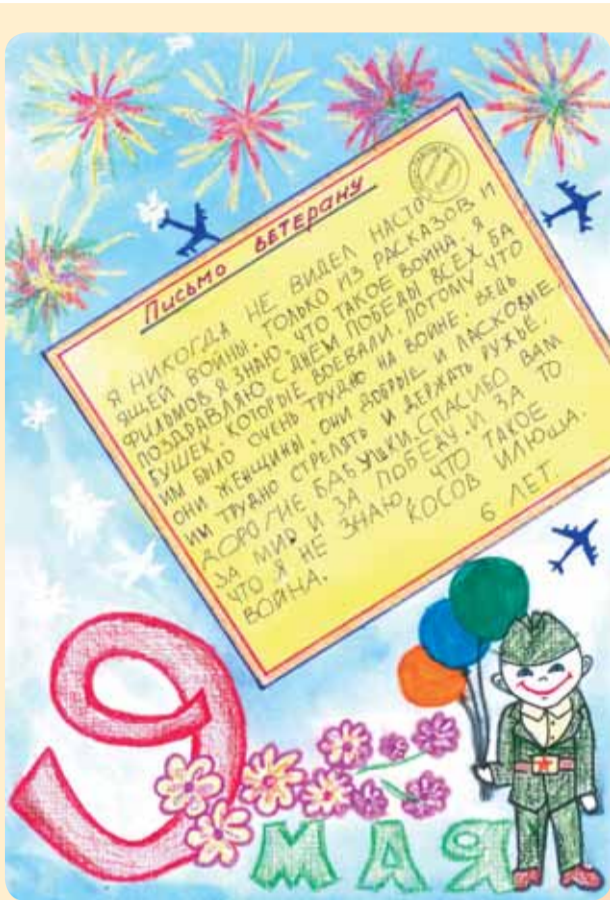 Письмо ветерану
Я НИКОГДА НЕ ВИДЕЛ НАСТО
ЯЩЕЙ ВОЙНЫ. ТОЛЬКО ИЗ РАСКАЗОВ И
ФИЛЬМОВ Я ЗНАЮ, ЧТО ТАКОЕ ВОЙНА. Я
ПОЗДРАВЛЯЮ С ДНЕМ ПОБЕДЫ ВСЕХ БА
БУШЕК, КОТОРЫЕ ВОЕВАЛИ. ПОТОМУ ЧТО
ИМ БЫЛО ОЧЕНЬ ТРУДНО НА ВОЙНЕ. ВЕДЬ
ОНИ ЖЕНЩИНЫ. ОНИ ДОБРЫЕ И ЛАСКОВЫЕ.
ИМ ТРУДНО СТРЕЛЯТЬ И ДЕРЖАТЬ РУЖЬЁ.
ДОРОГИЕ БАБУШКИ. СПАСИБО ВАМ
ЗА МИР И ЗА ПОБЕДУ. И ЗА ТО
ЧТО Я НЕ ЗНАЮ, ЧТО ТАКОЕ
ВОЙНА.
КОСОВ ИЛЮША.
6 ЛЕТ.
9
МАЯ